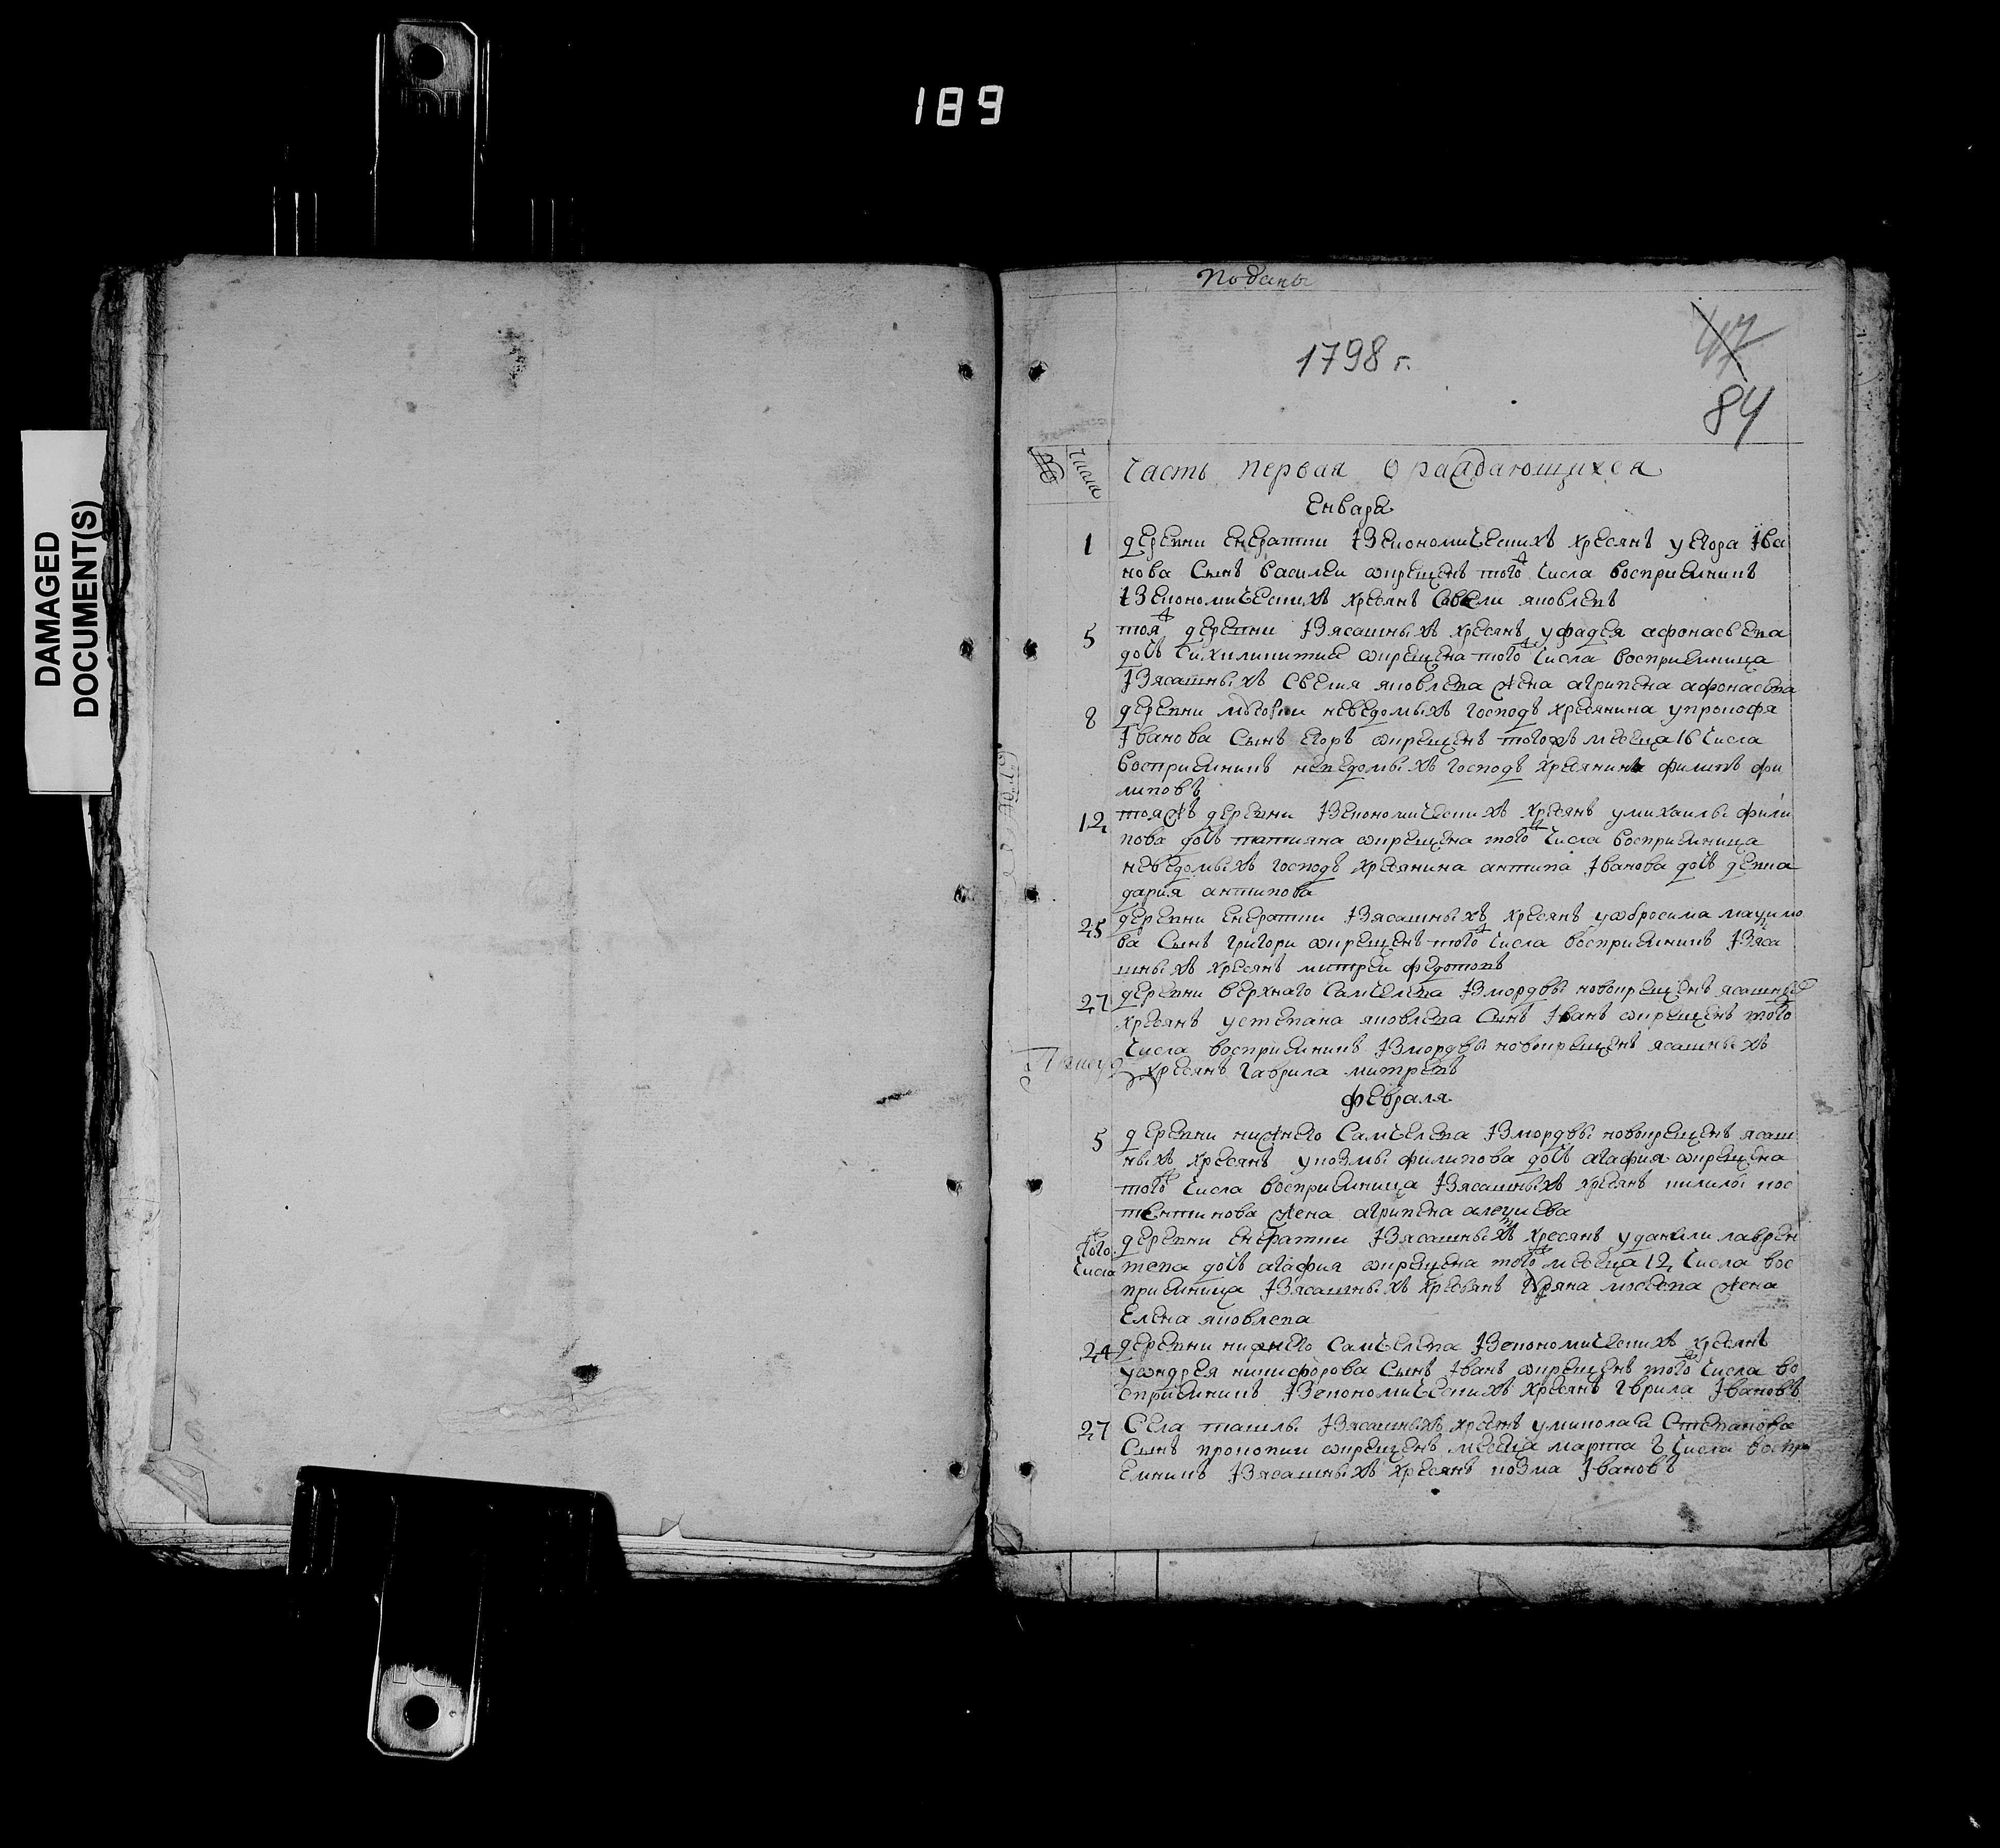 189
DAMAGED
DOCUMENT(S)
Поданы
1798 г.
47
84
№
Числа
Часть первая о раждающихся
Енваря
1
деревни Енератки Iзекономическихъ хресянъ у Егора Iва
нова Сынъ василеи окрещенъ того ж числа восприемникъ
Iзекономическихъ хресянъ Савели яковлевъ
5
тоя ж деревни Iзясашныхъ хресянъ у фадея афонасьева
дочь окрещена того ж числа восприемница
Iзясашныхъ яковлева жена агрипена афонасева
8
деревни неведомыхъ господъ хресянина у прокофя
Iванова Сынъ Егоръ окрещенъ тогожъ месеца 16 числа
восприемникъ неведомыхъ господъ хресянинъ филипъ фи
липовъ
12
тояжъ деревни Iзекономическихъ хресянъ у михаилы фили
пова дочь татияна окрещена того ж числа восприемница
неведомыхъ господъ хресянина антипа Iванова дочь девка
дария антипова
25
деревни Енератки Iзясашныхъ хресянъ у обросима мацимо
ва Сынъ григори окрещенъ того ж числа восприемникъ Iзяса
шныхъ хресянъ митреи федотовъ
27
деревни верхнаго Самчелева Iзмордвы новокрещенъ ясашныхъ
хресянъ у степана яковлева Сынъ Iванъ окрещенъ того
числа восприемникъ Iзмордвы новокрещенъ ясашныхъ
хресянъ гаврила митревъ
февраля
5
деревни нижнего Самчелева Iзмордвы новокрещенъ ясаш
ныхъ хресянъ у козмы филипова дочь агафия окрещена
того ж числа восприемница Iзясашныхъ хресянъ кос
тентинова жена агрипена
того ж
числа
деревни Енератки Iзясашныхъ хресянъ у данили лаврен
тева дочь агафия окрещена того ж месеца 12 числа вос
приемница Iзясашныхъ хресьянъ мосеева жена
Елена яковлева
24
деревни нижнего Самчелева Iзекономическихъ хресянъ
у ондрея никифорова Сынъ Iванъ окрещенъ того ж числа во
сприемникъ Iзекономическихъ хресянъ гврила Iвановъ
27
Села ташлы Iзясашныхъ хресянъ у миколаи Степанова
Сынъ прокопии окрещенъ месеца марта числа воспр
емникъ Iзясашныхъ хресянъ козма Iвановъ